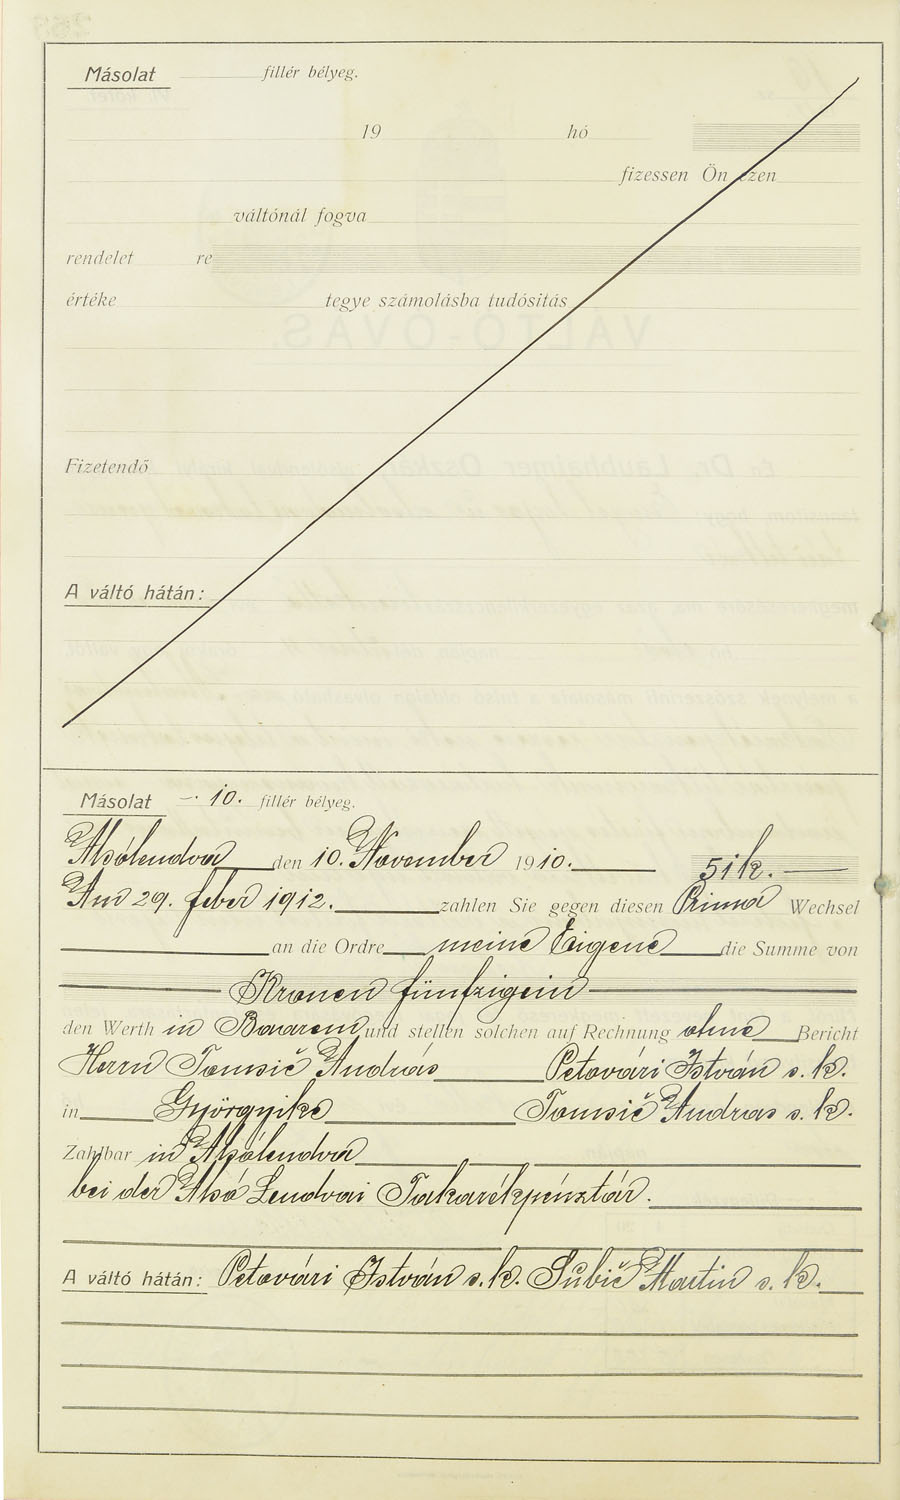 Másolat fillér bélyeg.
19 hó
fizessen Ön ezen
váltónál fogva
rendelet re
értéke tegye számolásba tudósitás
Fizetendő
A váltó hátán:
Másolat — 10. fillér bélyeg.
Alsólendva den 10. November 1910. 51 k.
Am 29. feber 1912. zahlen Sie gegen diesen Prima Wechsel
an die Ordre meine Eigene die Summe von
Kronen fünfzigein
den Werth in Baarem und stellen solchen auf Rechnung ohne Bericht
Herrn Tomsič András Petovári István s. k.
in Györgyike Tomsič Andras s. k.
Zahlbar in Alsólendva
bei der Alsó Lendvai Takarékpénztár.
A váltó hátán: Petovári István s. k. Subič Martin s. k.